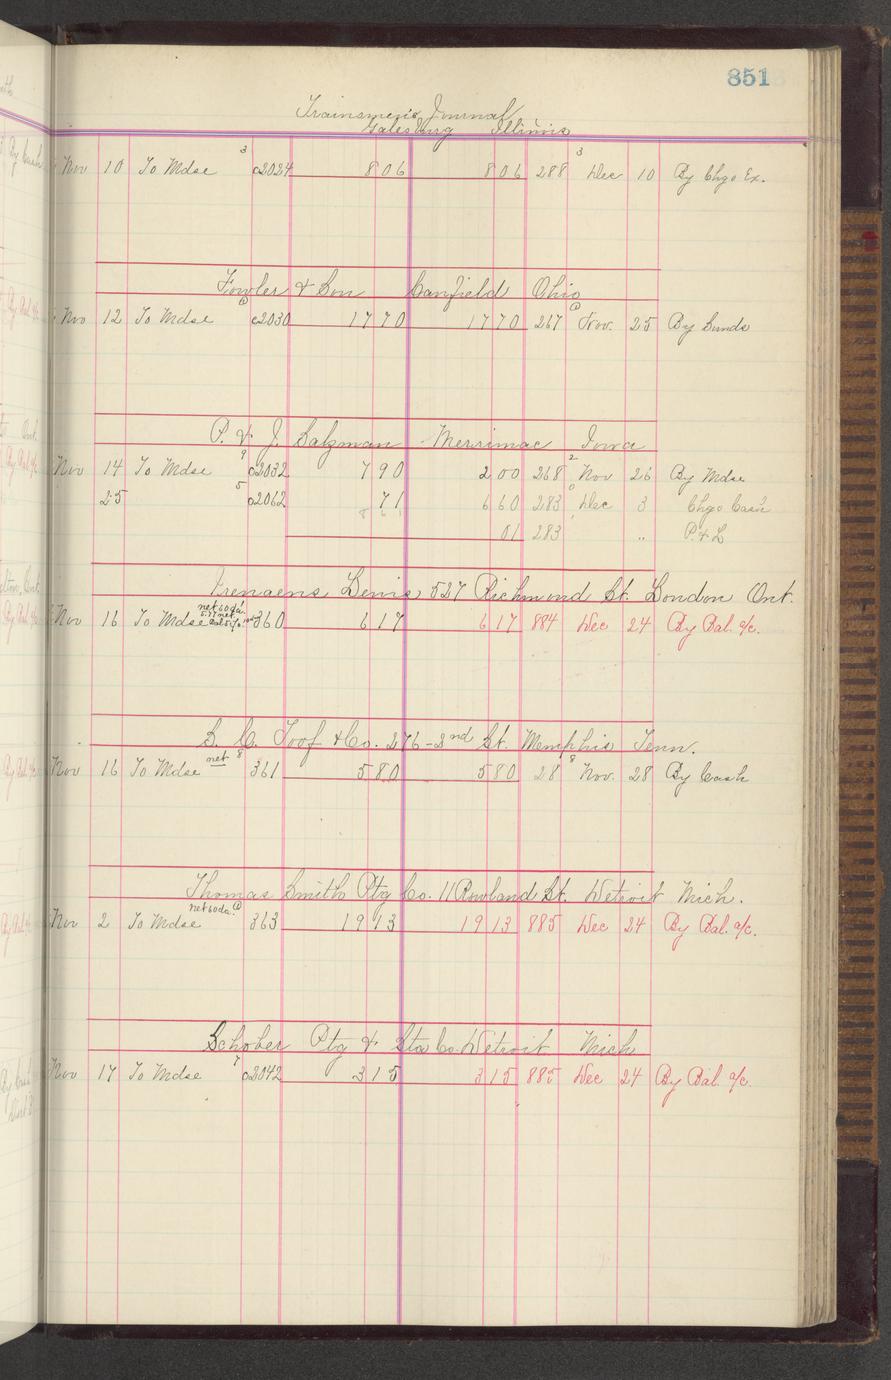 851
Trainsmen's Journal
Galesburg Illinois
Nov 10 To Mdse 3 c2024 806 806 288 3 Dec 10 By Chgo Ex.
Fowler & Son Canfield Ohio
Nov 12 To Mdse c2030 1770 1770 267 Nov. 25 By Sunds
P. & J. Salzman Merrimac Iowa
Nov 14 To Mdse 9 c2032 790 200 268 2 Nov 26 By Mdse
25 5 c2062 71 660 283 0 Dec 3 Chgo Cash
861
01 283 " P. & L
Irenaens Denis 527 Richmond St. London Ont.
net 60 da.
Nov 16 To Mdse 360 617 617 884 Dec 24 By Bal. a/c.
S. C. Toof & Co. 276-2nd St. Memphis Tenn.
Nov 16 To Mdse net 8 361 580 580 28 8 Nov. 28 By Cash
Thomas Smith Ptg Co. 11 Rowland St. Detroit Mich.
net 60 da.
Nov 2 To Mdse 363 1913 1913 885 Dec 24 By Bal. a/c.
Schober Ptg & Sta Co. Detroit Mich
Nov 17 To Mdse 7 c2042 315 315 885 Dec 24 By Bal. a/c.